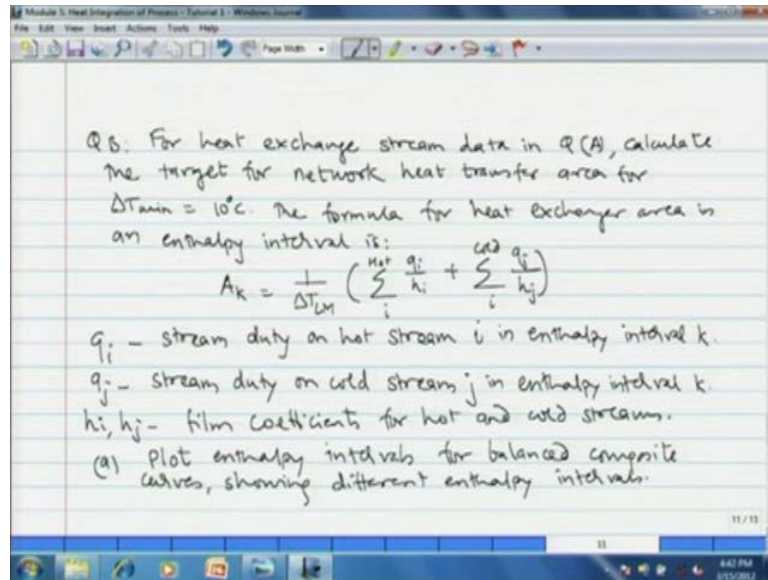 Module 5. Heat Integration of Process - Tutorial 1 - Windows Journal
File Edit View Insert Actions Tools Help
Page Width
Q B: For heat exchange stream data in Q(A), calculate
the target for network heat transfer area for
ΔTmin = 10°C. The formula for heat exchanger area in
an enthalpy interval is:
A_k = 1/ΔT_LM ( Σ_i^Hot q_i/h_i + Σ_i^cold q_j/h_j )
q_i - stream duty on hot stream i in enthalpy interval k.
q_j - stream duty on cold stream j in enthalpy interval k.
h_i, h_j - film coefficients for hot and cold streams.
(a) Plot enthalpy intervals for balanced composite
curves, showing different enthalpy intervals.
11 / 13
11
4:42 PM
1/15/2012